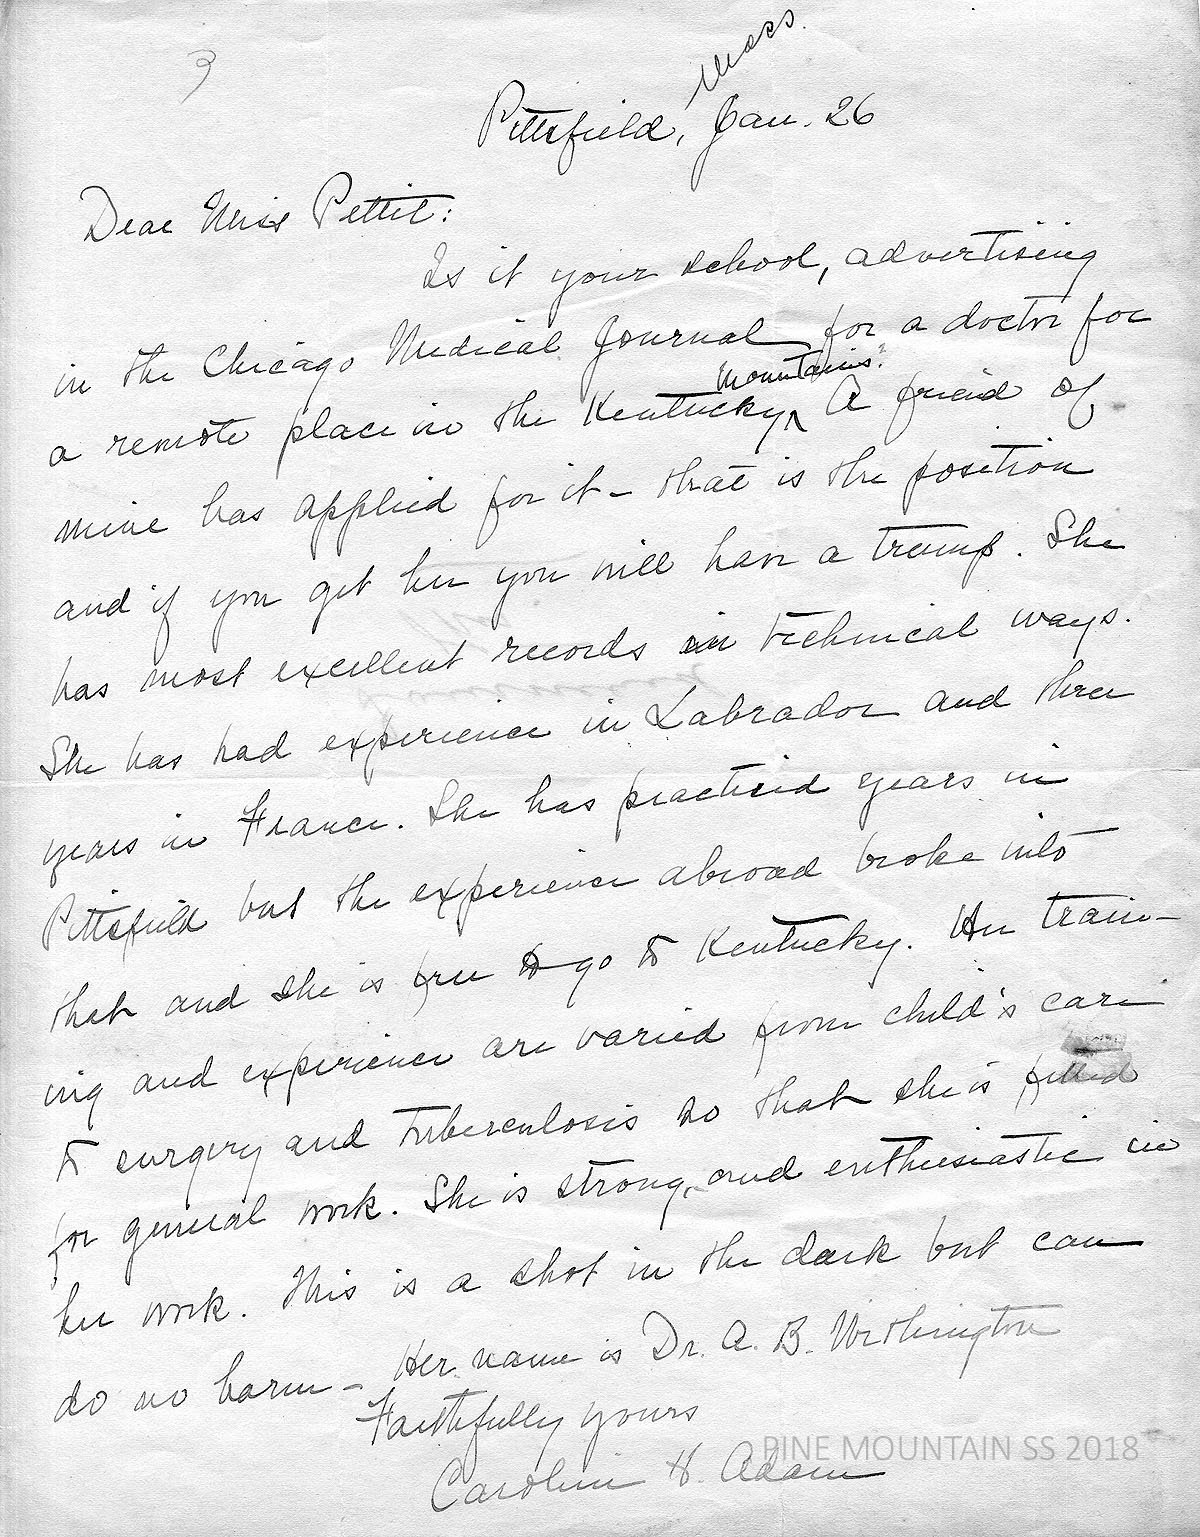 3
Mass.
Pittsfield, Jan. 26
Dear Miss Pettit:
Is it your school, advertising
in the Chicago Medical Journal for a doctor for
a remote place in the Kentucky mountains? A friend of
mine has applied for it - that is the position
and if you get her you will have a trump. She
has most excellent records in technical ways.
She has had experience in Labrador and three
years in France. She has practiced years in
Pittsfield but the experience abroad broke into
that and she is free to go to Kentucky. Her train-
ing and experience are varied from child's care
to surgery and tuberculosis so that she is fitted
for general work. She is strong, and enthusiastic in
her work. This is a shot in the dark but can
do no harm - Her name is Dr. A. B. Withington
Faithfully yours
Caroline H. Adam
PINE MOUNTAIN SS 2018